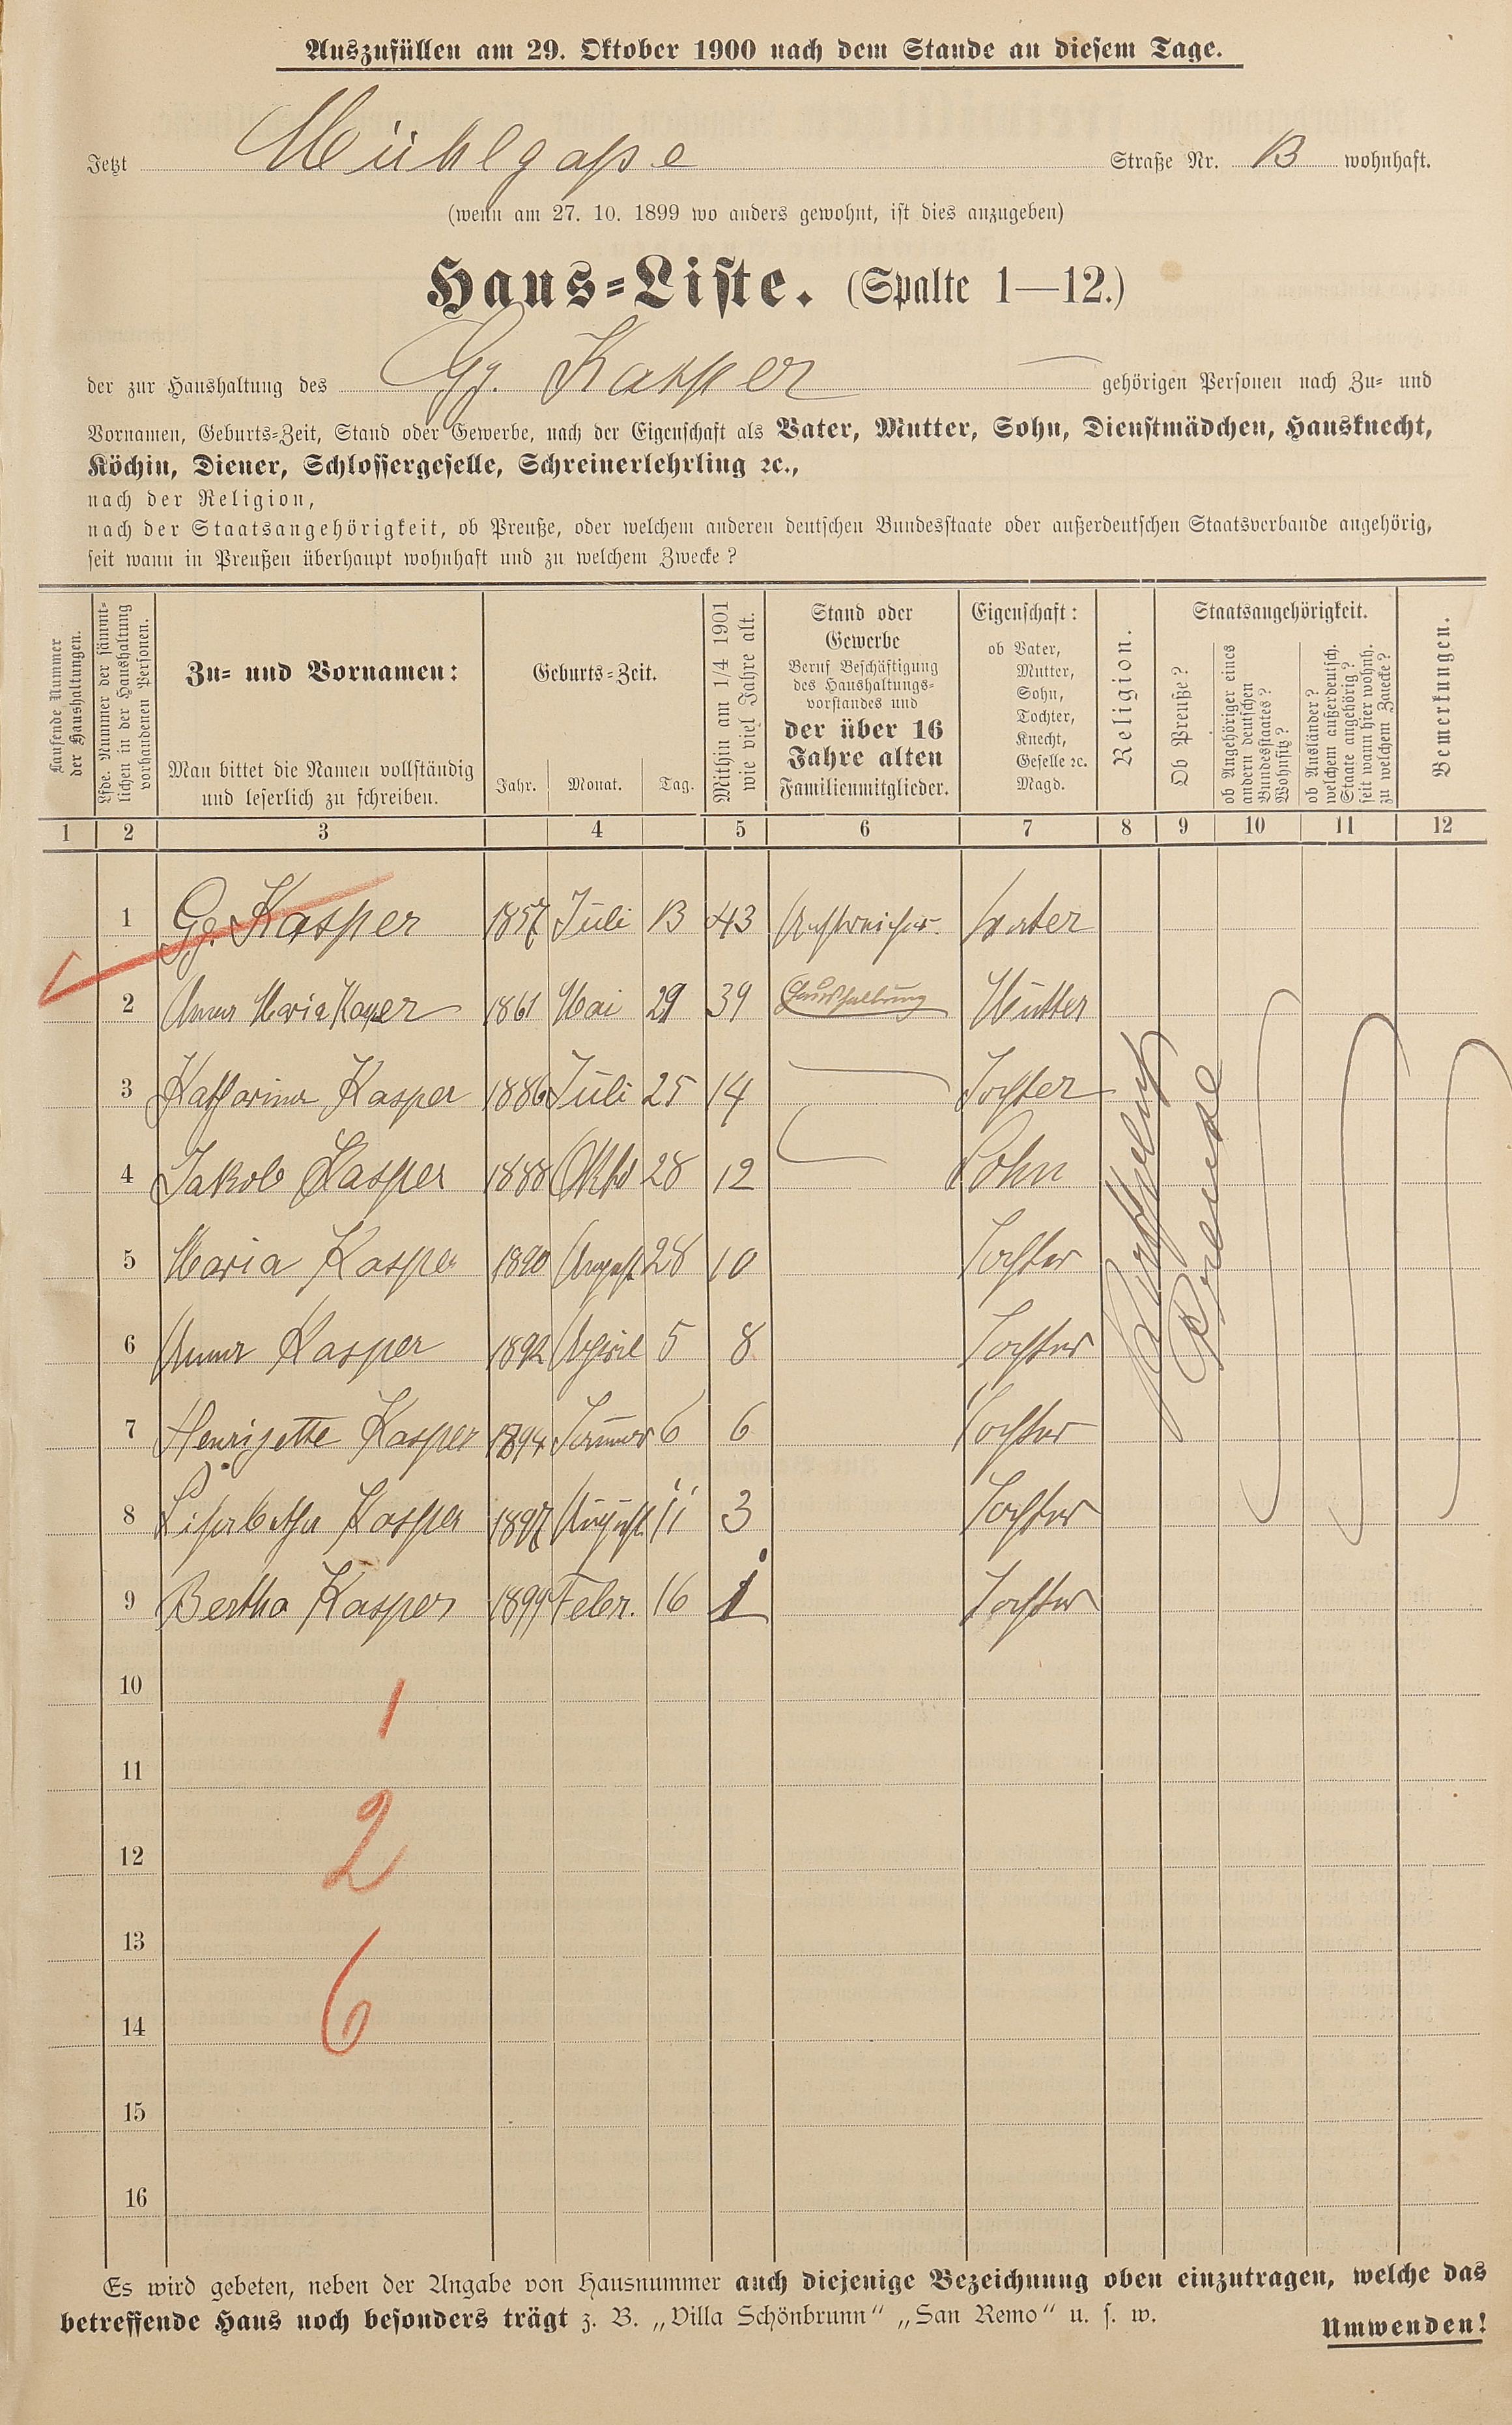 Auszufüllen am 29. Oktober 1900 nach dem Stande an diesem Tage.
Jetzt Mühlgaße Straße Nr. 13 wohnhaft.
(wenn am 27. 10. 1899 wo anders gewohnt, ist dies anzugeben)
Haus-Liste. (Spalte 1—12.)
der zur Haushaltung des Gg. Kasper gehörigen Personen nach Zu- und
Vornamen, Geburts-Zeit, Stand oder Gewerbe, nach der Eigenschaft als Vater, Mutter, Sohn, Dienstmädchen, Hausknecht,
Köchin, Diener, Schlossergeselle, Schreinerlehrling ꝛc.,
nach der Religion,
nach der Staatsangehörigkeit, ob Preuße, oder welchem anderen deutschen Bundesstaate oder außerdeutschen Staatsverbande angehörig,
seit wann in Preußen überhaupt wohnhaft und zu welchem Zwecke?
Laufende Nummer
der Haushaltungen.
Lfde. Nummer der sämmt-
lichen in der Haushaltung
vorhandenen Personen.
Zu- und Vornamen:
Man bittet die Namen vollständig
und leserlich zu schreiben.
Geburts-Zeit.
Jahr. Monat. Tag.
Mithin am 1/4 1901
wie viel Jahre alt.
Stand oder
Gewerbe
Beruf Beschäftigung
des Haushaltungs-
vorstandes und
der über 16
Jahre alten
Familienmitglieder.
Eigenschaft:
ob Vater,
Mutter,
Sohn,
Tochter,
Knecht,
Geselle ꝛc.
Magd.
Religion.
Staatsangehörigkeit.
Ob Preuße?
ob Angehöriger eines
andern deutschen
Bundesstaates?
Wohnsitz?
ob Ausländer?
welchem außerdeutsch.
Staate angehörig?
seit wann hier wohnh.
zu welchem Zwecke?
Bemerkungen.
1 2 3 4 5 6 7 8 9 10 11 12
1 Gg. Kasper 1857 Juli 13 43 Vater
2 Anna Maria Kasper 1861 Mai 29 39 Haushaltung Mutter
3 Katharina Kasper 1886 Juli 25 14 Tochter
4 Jakob Kasper 1888 Oktb 28 12 Sohn
5 Maria Kasper 1890 August 28 10 Tochter
6 Anna Kasper 1892 April 5 8 Tochter
7 Henrijette Kasper 1894 Januar 6 6 Tochter
8 Lisabetha Kasper 1897 August 11 3 Tochter
9 Bertha Kasper 1899 Febr. 16 1 Tochter
Katholisch
Preuße
10
1
11
2
12
13
6
14
15
16
Es wird gebeten, neben der Angabe von Hausnummer auch diejenige Bezeichnung oben einzutragen, welche das
betreffende Haus noch besonders trägt z. B. „Villa Schönbrunn“ „San Remo“ u. s. w.
Umwenden!